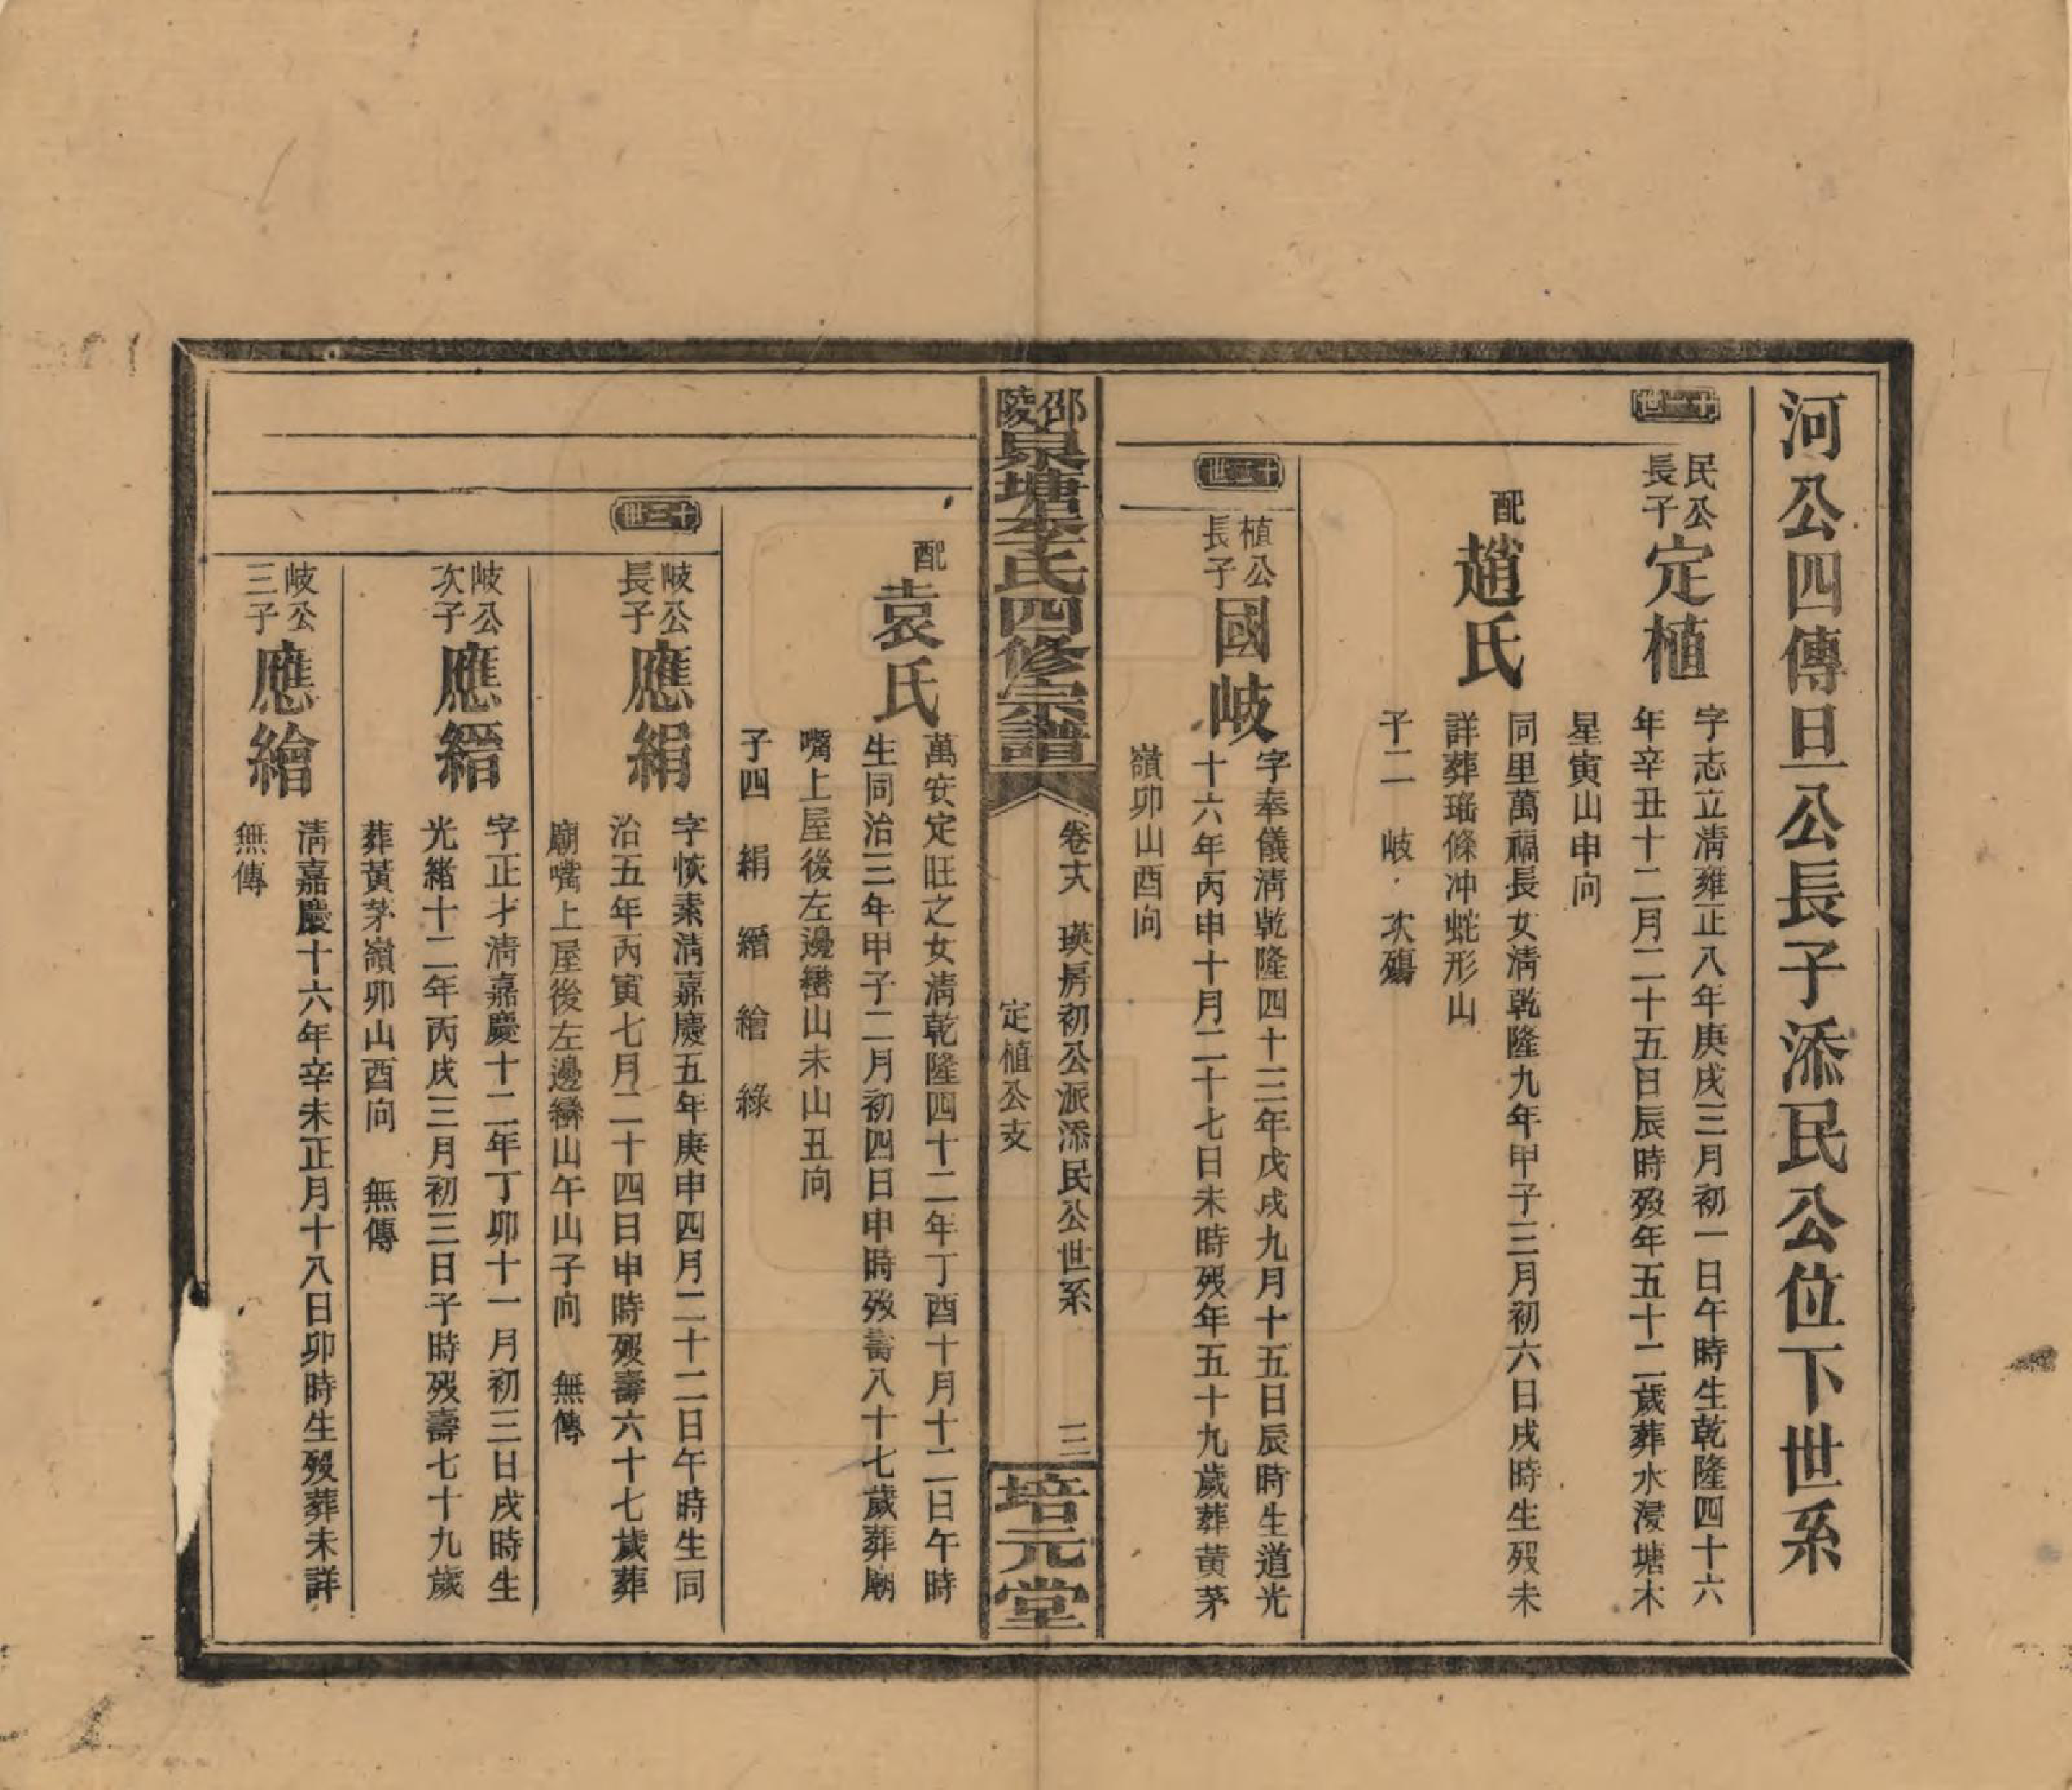 河公四傳旦公長子添民公位下世系
十一世
民公
長子
定植
字志立淸雍正八年庚戌三月初一日午時生乾隆四十六
年辛丑十二月二十五日辰時歿年五十二歲葬水浸塘木
星寅山申向
配
趙氏
同里萬福長女淸乾隆九年甲子三月初六日戌時生歿未
詳葬瑤條冲蛇形山
子二 岐 次殤
十二世
植公
長子
國岐
字奉儀淸乾隆四十三年戊戌九月十五日辰時生道光
十六年丙申十月二十七日未時歿年五十九歲葬黃茅
嶺卯山酉向
邵陵泉塘李氏四修宗譜
卷十六 瑛房初公派添民公世系 三
定植公支
培元堂
配
袁氏
萬安定旺之女淸乾隆四十二年丁酉十月十二日午時
生同治三年甲子二月初四日申時歿壽八十七歲葬廟
嘴上屋後左邊巒山未山丑向
子四 絹 縉 繪 綠
十三世
岐公
長子
應絹
字恢素淸嘉慶五年庚申四月二十二日午時生同
治五年丙寅七月二十四日申時歿壽六十七歲葬
廟嘴上屋後左邊巒山午山子向 無傳
岐公
次子
應縉
字正才淸嘉慶十二年丁卯十一月初三日戌時生
光緒十二年丙戌三月初三日子時歿壽七十九歲
葬黃茅嶺卯山酉向 無傳
岐公
三子
應繪
淸嘉慶十六年辛未正月十八日卯時生歿葬未詳
無傳